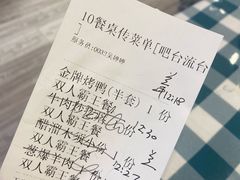 10餐桌传菜单[吧台流台
]
服务员:0007吴婷婷
金牌烤鸭(半套) 1 份
12:18
双人霸王餐
牛肉炒 份
双人霸王餐 12:30
醋油木 小份
双人霸王餐
葱爆羊肉 1 份
双人霸王餐 12:27